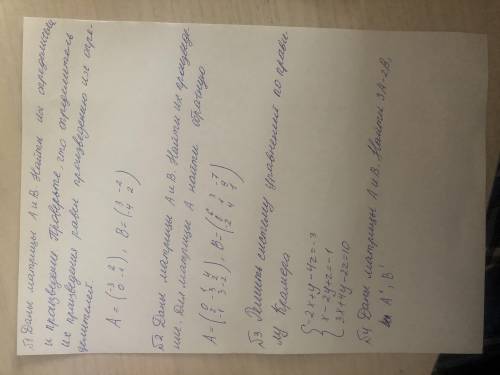 №1 Даны матрицы А и В. Найти их определители
и произведение. Проверьте, что определитель
их произведения равен произведению их опре-
делителей.
A = (-3 2
0 -1), B = (3 -2
-4 2)
№2 Даны матрицы А и В. Найти их произведе-
ние. Для матрицы А найти обратную
A =
B =
№3 Решить систему уравнений по прави-
лу Крамера
{-2x+y-4z=-3
x-2y+z=-1
3x+4y-2z=10
№4 Даны матрицы А и В. Найти 3A-2B,